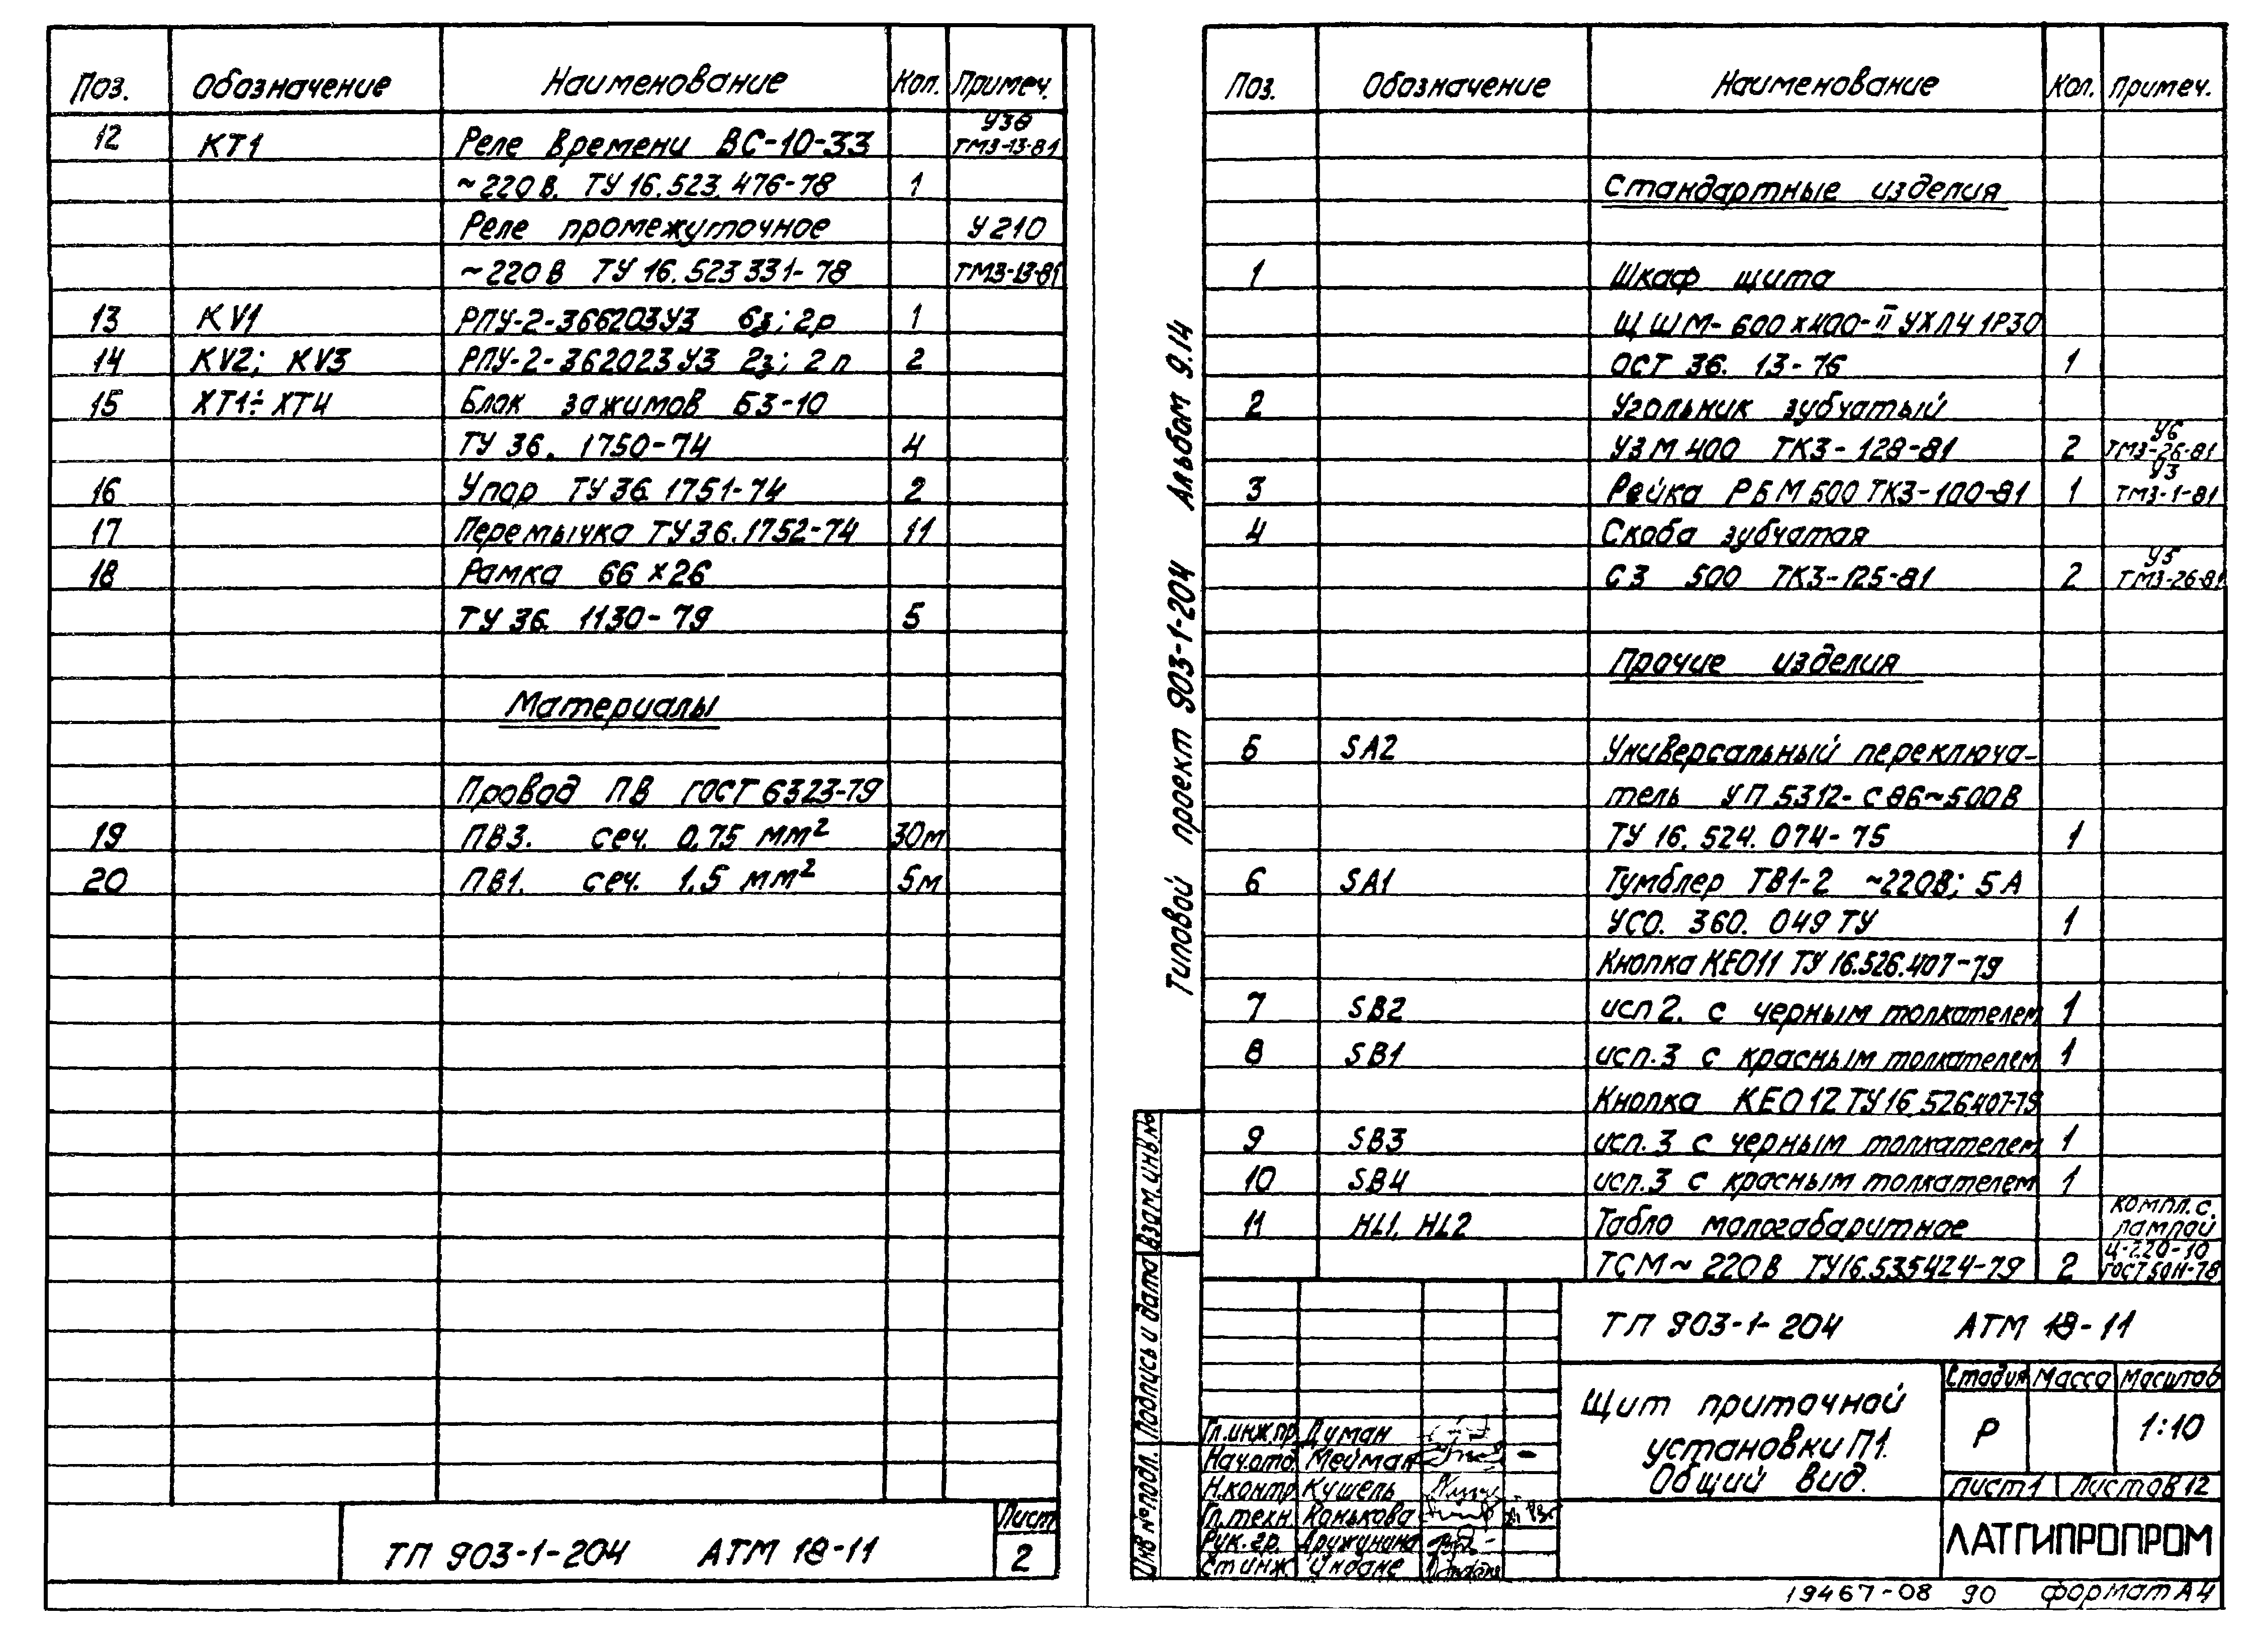 Поз. Обозначение Наименование Кол. Примеч.
У30
12 КТ1 Реле времени ВС-10-33 ТМ3-13-81
~220В. ТУ 16.523.476-78 1
Реле промежуточное У210
~220В ТУ 16.523331-78 ТМ3-13-81
13 KV1 РПУ-2-366203У3 6з; 2р 1
14 KV2; KV3 РПУ-2-362023У3 2з; 2п 2
15 ХТ1÷ХТ4 Блок зажимов БЗ-10
ТУ 36. 1750-74 4
16 Упор ТУ 36. 1751-74 2
17 Перемычка ТУ36.1752-74 11
18 Рамка 66×26
ТУ 36. 1130-79 5
Материалы
Провод ПВ ГОСТ 6323-79
19 ПВ3. сеч. 0,75 мм² 30м
20 ПВ1. сеч. 1,5 мм² 5м
Лист
ТП 903-1-204 АТМ 18-11 2
Типовой проект 903-1-204 Альбом 9.14
Поз. Обозначение Наименование Кол. Примеч.
Стандартные изделия
1 Шкаф щита
ЩШМ-600×400-II УХЛ4 1Р30
ОСТ 36. 13-76 1
2 Угольник зубчатый У6
УЗМ 400 ТК3-128-81 2 ТМ3-26-81
У3
3 Рейка РБМ 500 ТК3-100-81 1 ТМ3-1-81
4 Скоба зубчатая У5
СЗ 500 ТК3-125-81 2 ТМ3-26-81
Прочие изделия
5 SA2 Универсальный переключа-
тель УП 5312-С86~500В
ТУ 16. 524. 074-75 1
6 SA1 Тумблер ТВ1-2 ~220В; 5А
УСО. 360. 049 ТУ 1
Кнопка КЕ011 ТУ 16.526.407-79
7 SB2 исп 2. с черным толкателем 1
8 SB1 исп.3 с красным толкателем 1
Кнопка КЕ012 ТУ16.526407-79
9 SB3 исп.3 с черным толкателем 1
10 SB4 исп.3 с красным толкателем 1
компл. с.
11 HL1, HL2 Табло малогабаритное лампой
Ц-220-10
ТСМ~220В ТУ16.535424-79 2 ГОСТ 5011-78
ТП 903-1-204 АТМ 18-11
Щит приточной
установки П1.
Общий вид.
Стадия Масса Масштаб
Р 1:10
Лист 1 Листов 12
ЛАТГИПРОПРОМ
Гл.инж.пр. Думан
Нач.отд. Мейман
Н.контр. Кушель
Гл.техн. Конькова
Рук.гр. Дружинина
Ст инж Индане
Инв № подл. Подпись и дата Взам.инв.№
19467-08 90 формат А4